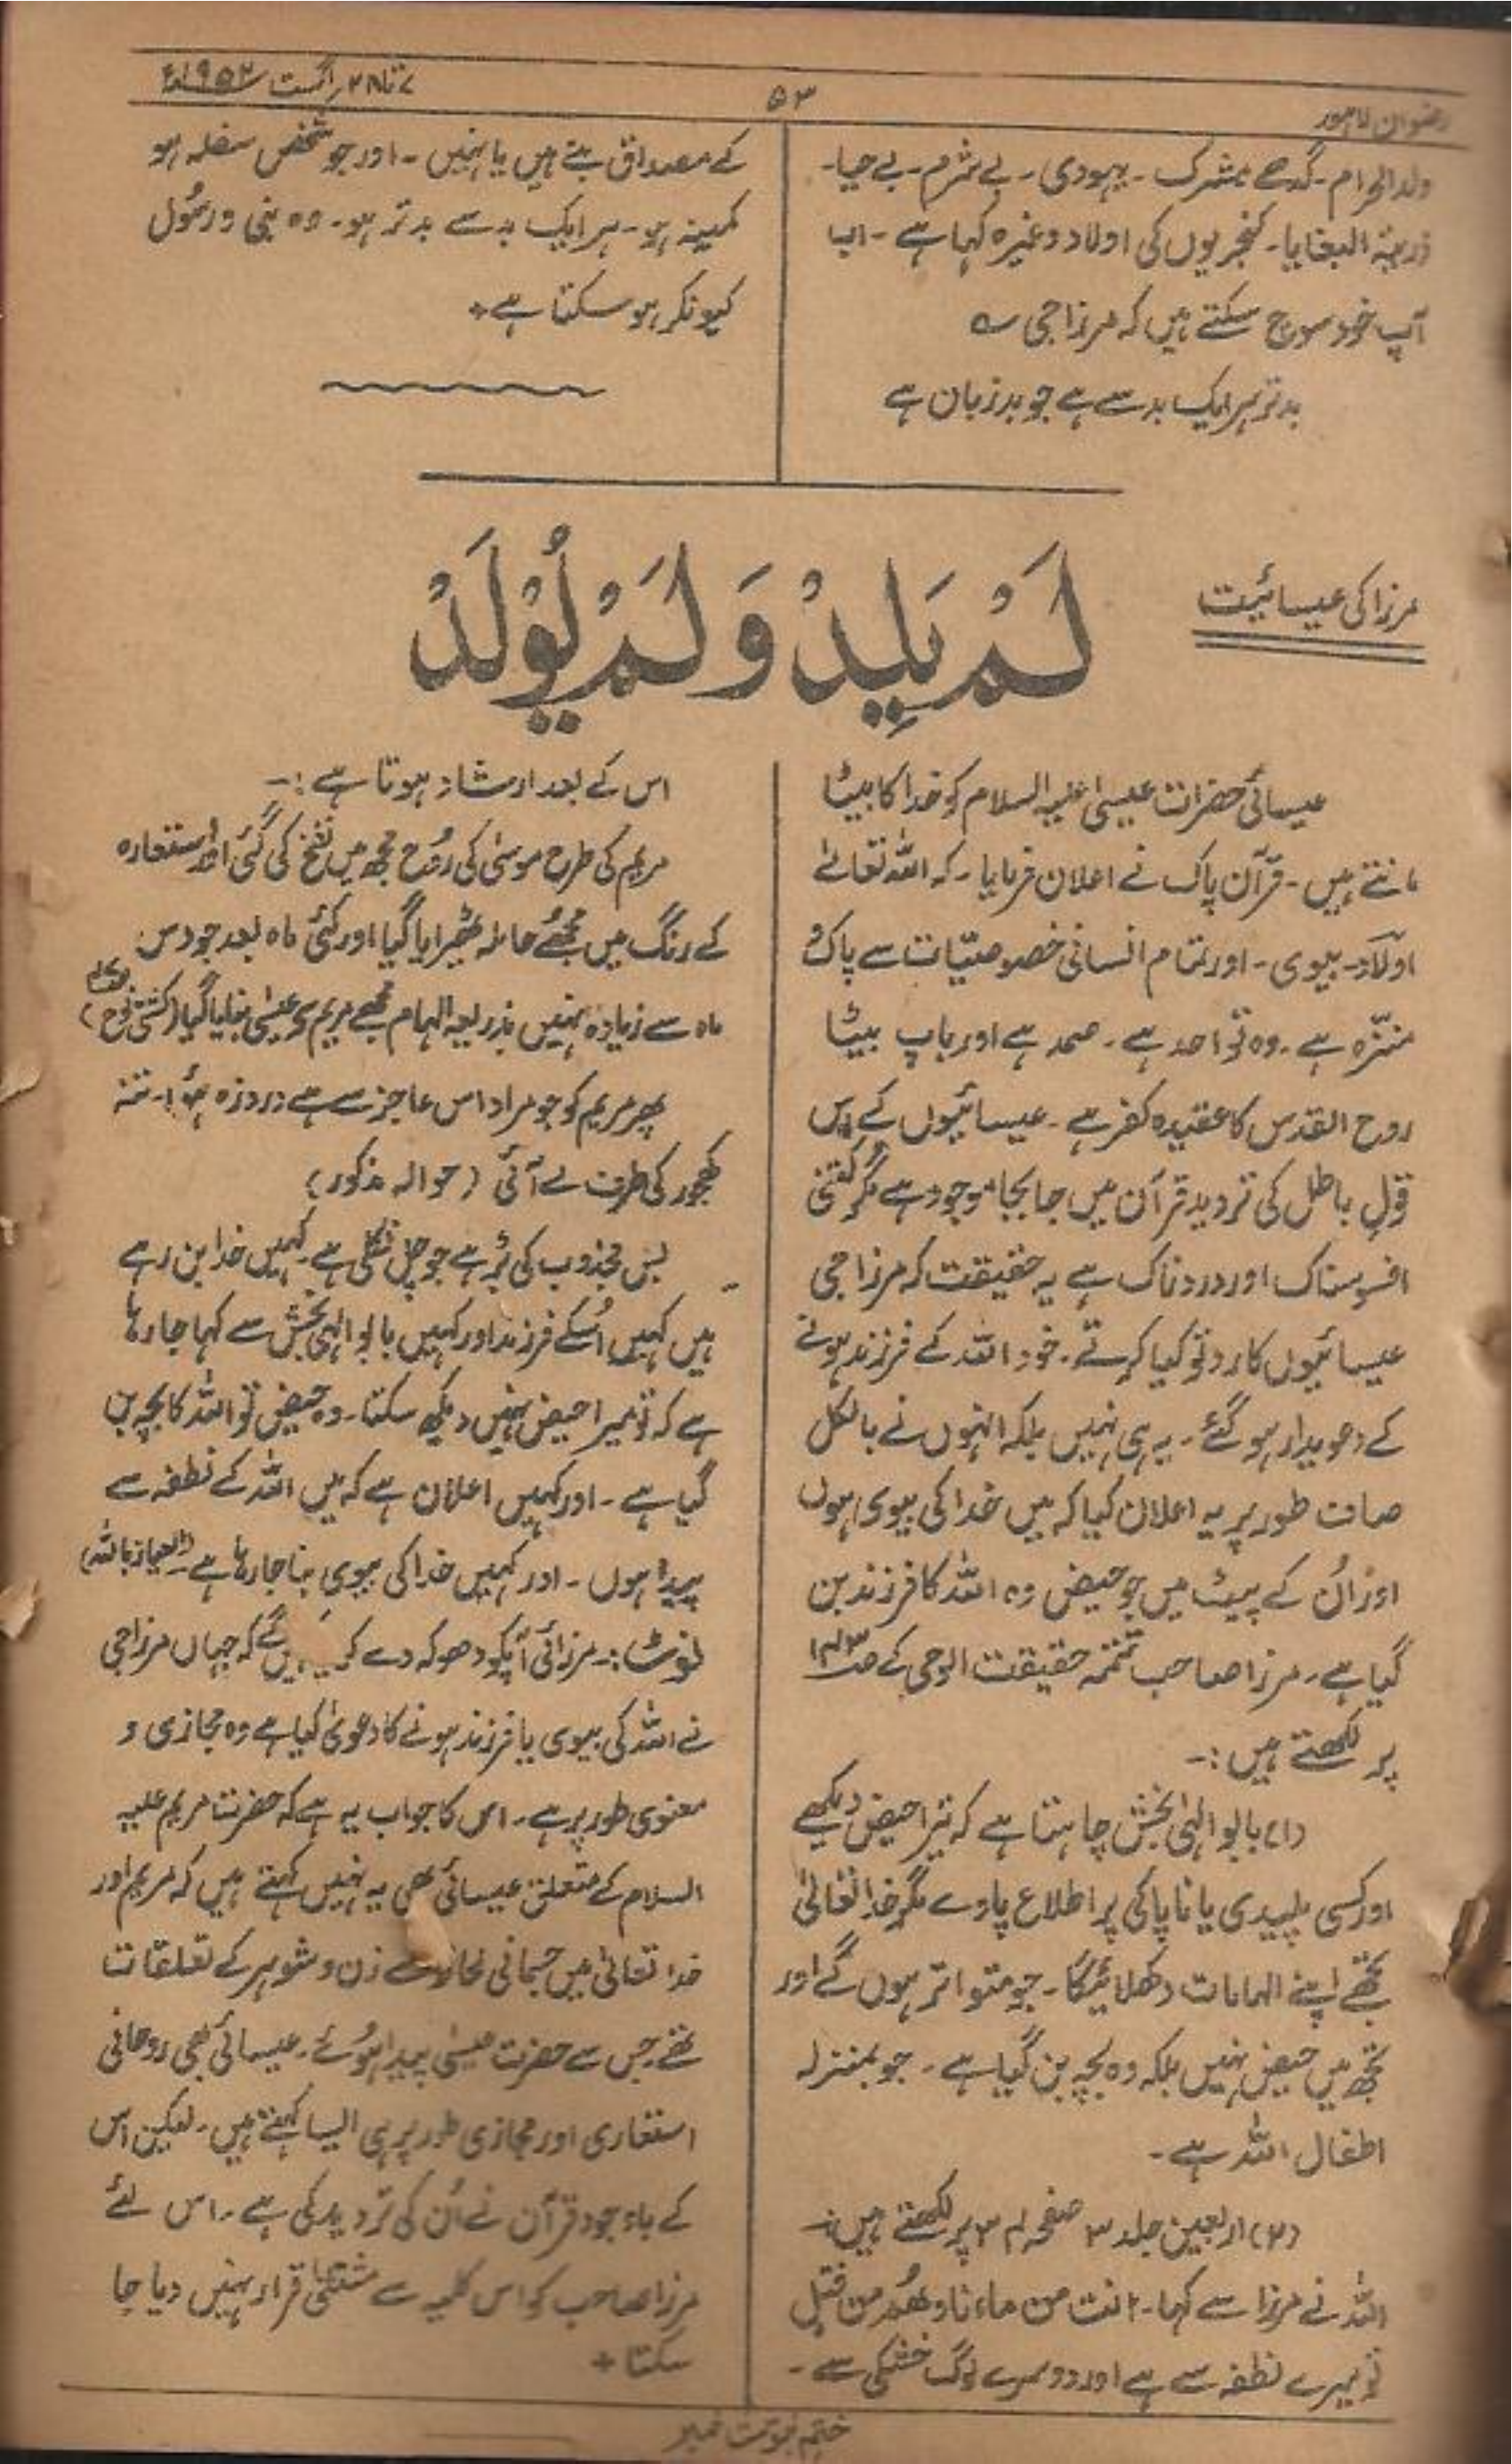 رضوان لاہور
۵۳
۷ تا ۲۸ اگست ۱۹۵۲ء
ولد الحرام۔ گدھے مشرک۔ یہودی۔ بے شرم۔ بے حیا۔
ذریۃ البغایا۔ کنجریوں کی اولاد وغیرہ کہا ہے۔ اب
آپ خود سوچ سکتے ہیں کہ مرزا جی ؎
بدتر ہر ایک بد سے ہے جو بدزبان ہے
کے مصداق بنتے ہیں یا نہیں۔ اور جو شخص سفلہ ہو
کمینہ ہو۔ ہر ایک بد سے بدتر ہو۔ وہ نبی و رسُول
کیونکر ہو سکتا ہے +
مرزا کی عیسائیت
لَمْ یَلِدْ وَلَمْ یُوْلَدْ
عیسائی حضرات عیسیٰ علیہ السلام کو خدا کا بیٹا
مانتے ہیں۔ قرآن پاک نے اعلان فرمایا۔ کہ اللہ تعالےٰ
اولاد۔ بیوی۔ اور تمام انسانی خصوصیّات سے پاک و
منزّہ ہے۔ وہ تو احد ہے۔ صمد ہے اور باپ بیٹا
روح القدس کا عقیدہ کفر ہے۔ عیسائیوں کے اس
قول باطل کی تردید قرآن میں جا بجا موجود ہے مگر کتنی
افسوسناک اور دردناک ہے یہ حقیقت کہ مرزا جی
عیسائیوں کا رد تو کیا کرتے۔ خود اللہ کے فرزند ہونے
کے دعویدار ہو گئے۔ یہ ہی نہیں بلکہ انہوں نے بالکل
صاف طور پر یہ اعلان کیا کہ میں خدا کی بیوی ہوں
اور اُن کے پیٹ میں جو حیض وہ اللہ کا فرزند بن
گیا ہے۔ مرزا صاحب تتمّہ حقیقت الوحی کے صـ۱۴۳
پر لکھتے ہیں:۔
(۱) بابو الٰہی بخش چاہتا ہے کہ تیرا حیض دیکھے
اور کسی پلیدی یا ناپاکی پر اطلاع پاوے مگر خدا تعالیٰ
تجھے اپنے الہامات دکھلائیگا۔ جو متواتر ہوں گے اور
تجھ میں حیض نہیں بلکہ وہ بچہ بن گیا ہے۔ جو بمنزلہ
اطفال اللہ ہے۔
(۲) اربعین جلد ۳ صفحہ ۳۴ پر لکھتے ہیں:۔
اللہ نے مرزا سے کہا۔ انت من ماءنا وھُم من فشل
تو میرے نطفہ سے ہے اور دوسرے لوگ خشکی سے۔
اس کے بعد ارشاد ہوتا ہے:۔
مریم کی طرح موسیٰ کی رُوح مجھ میں نفخ کی گئی اور استعارہ
کے رنگ میں مجھے حاملہ ٹھیرایا گیا اور کئی ماہ بعد جو دس
ماہ سے زیادہ نہیں بذریعہ الہام مجھے مریم سے عیسیٰ بنایا گیا (کشتی نوح)
پھر مریم کو جو مراد اس عاجز سے ہے دردزہ ہوا۔ تنہ
کھجور کی طرف لے آئی (حوالہ مذکور)
بس مجذوب کی بڑ ہے جو چل نکلی ہے۔ کہیں خدا بن رہے
ہیں کہیں اسکے فرزند اور کہیں بابو الٰہی بخش سے کہا جا رہا
ہے کہ تو میرا حیض نہیں دیکھ سکتا۔ وہ حیض تو اللہ کا بچہ بن
گیا ہے۔ اور کہیں اعلان ہے کہ میں اللہ کے نطفہ سے
پیدا ہوں۔ اور کہیں خدا کی بیوی بنا جا رہا ہے (العیاذ باللہ)
نوٹ:۔ مرزائی آپکو دھوکہ دے کر گے کہ جہاں مرزا جی
نے اللہ کی بیوی یا فرزند ہونے کا دعویٰ کیا ہے وہ مجازی و
معنوی طور پر ہے۔ اس کا جواب یہ ہے کہ حضرت مریم علیہ
السلام کے متعلق عیسائی بھی یہ نہیں کہتے ہیں کہ مریم اور
خدا تعالیٰ میں جسمانی لحاظ سے زن و شوہر کے تعلقات
تھے جس سے حضرت عیسٰی پیدا ہُوئے۔ عیسائی بھی روحانی
استعاری اور مجازی طور پر ہی ایسا کہتے ہیں۔ لیکن اس
کے باوجود قرآن نے اُن کی تردید کی ہے۔ اس لئے
مرزا صاحب کو اس کلیہ سے مستثنٰی قرار نہیں دیا جا
سکتا +
ختم نبوت نمبر